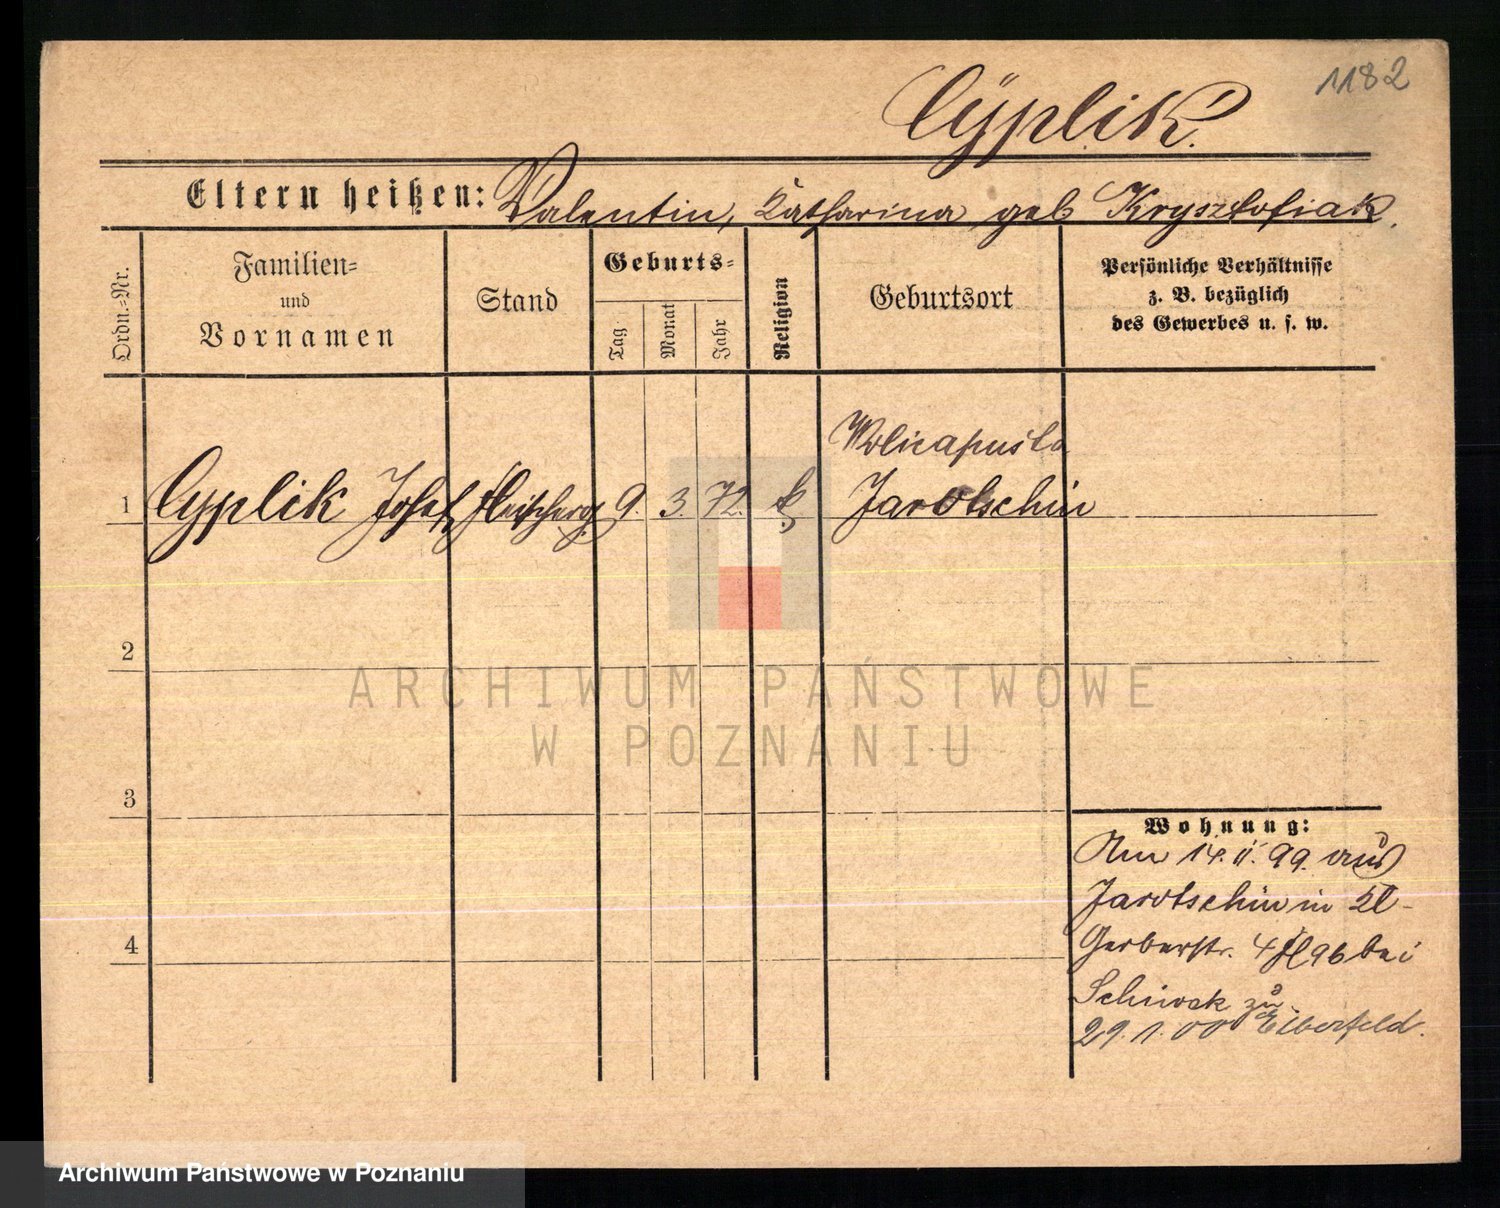 1182
Cÿplik.
Eltern heißen: Valentin, Katharina geb Krysztofiak.
Ordn.-Nr.
Familien-
und
Vornamen
Stand
Geburts-
Tag
Monat
Jahr
Religion
Geburtsort
Persönliche Verhältnisse
z. B. bezüglich
des Gewerbes u. s. w.
Wolicapusta
1 Cyplik Josef Fleischerg. 9. 3. 72. k Jarotschin
2
3
4
Wohnung:
Am 14.11.99. aus
Jarotschin in Kl-
Gerberstr. 4 96 bei
zu
29.1.00 Elberfeld.
ARCHIWUM PAŃSTWOWE
W POZNANIU
Archiwum Państwowe w Poznaniu